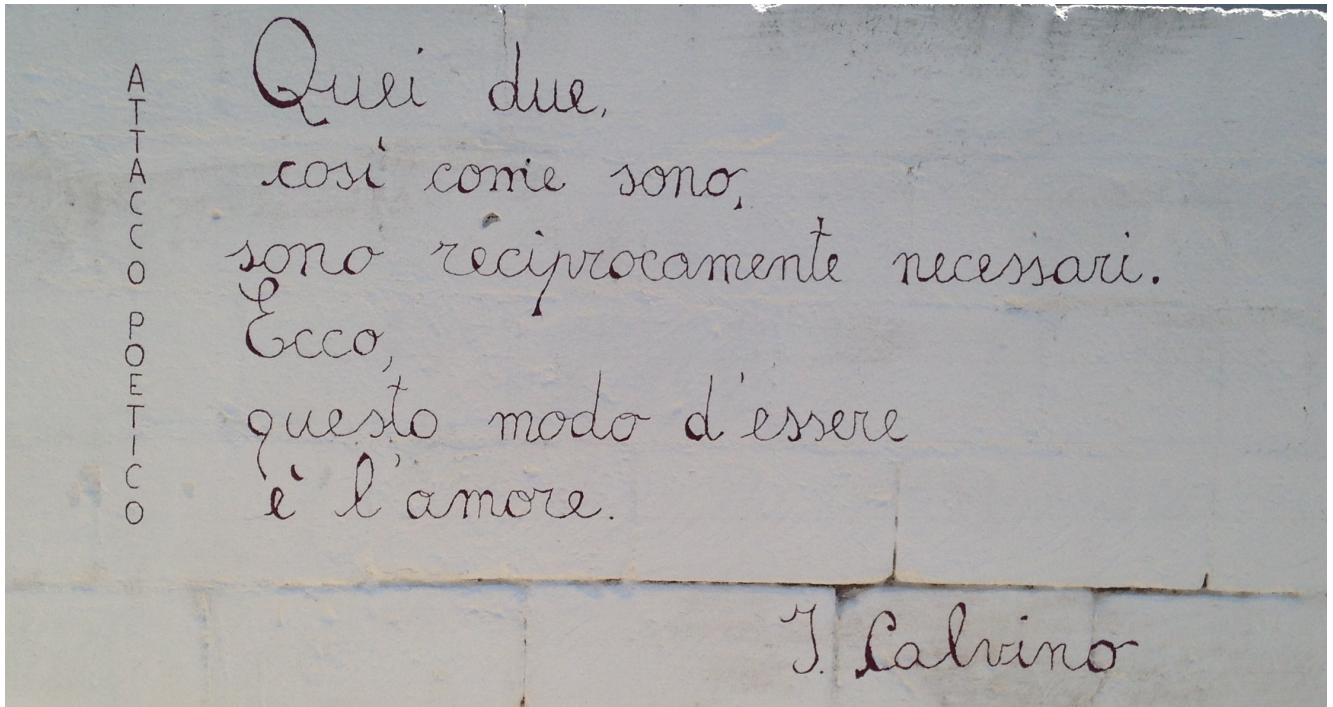 ATTACCO POETICO
Quei due,
così come sono,
sono reciprocamente necessari.
Ecco,
questo modo d'essere
è l'amore.
I. Calvino